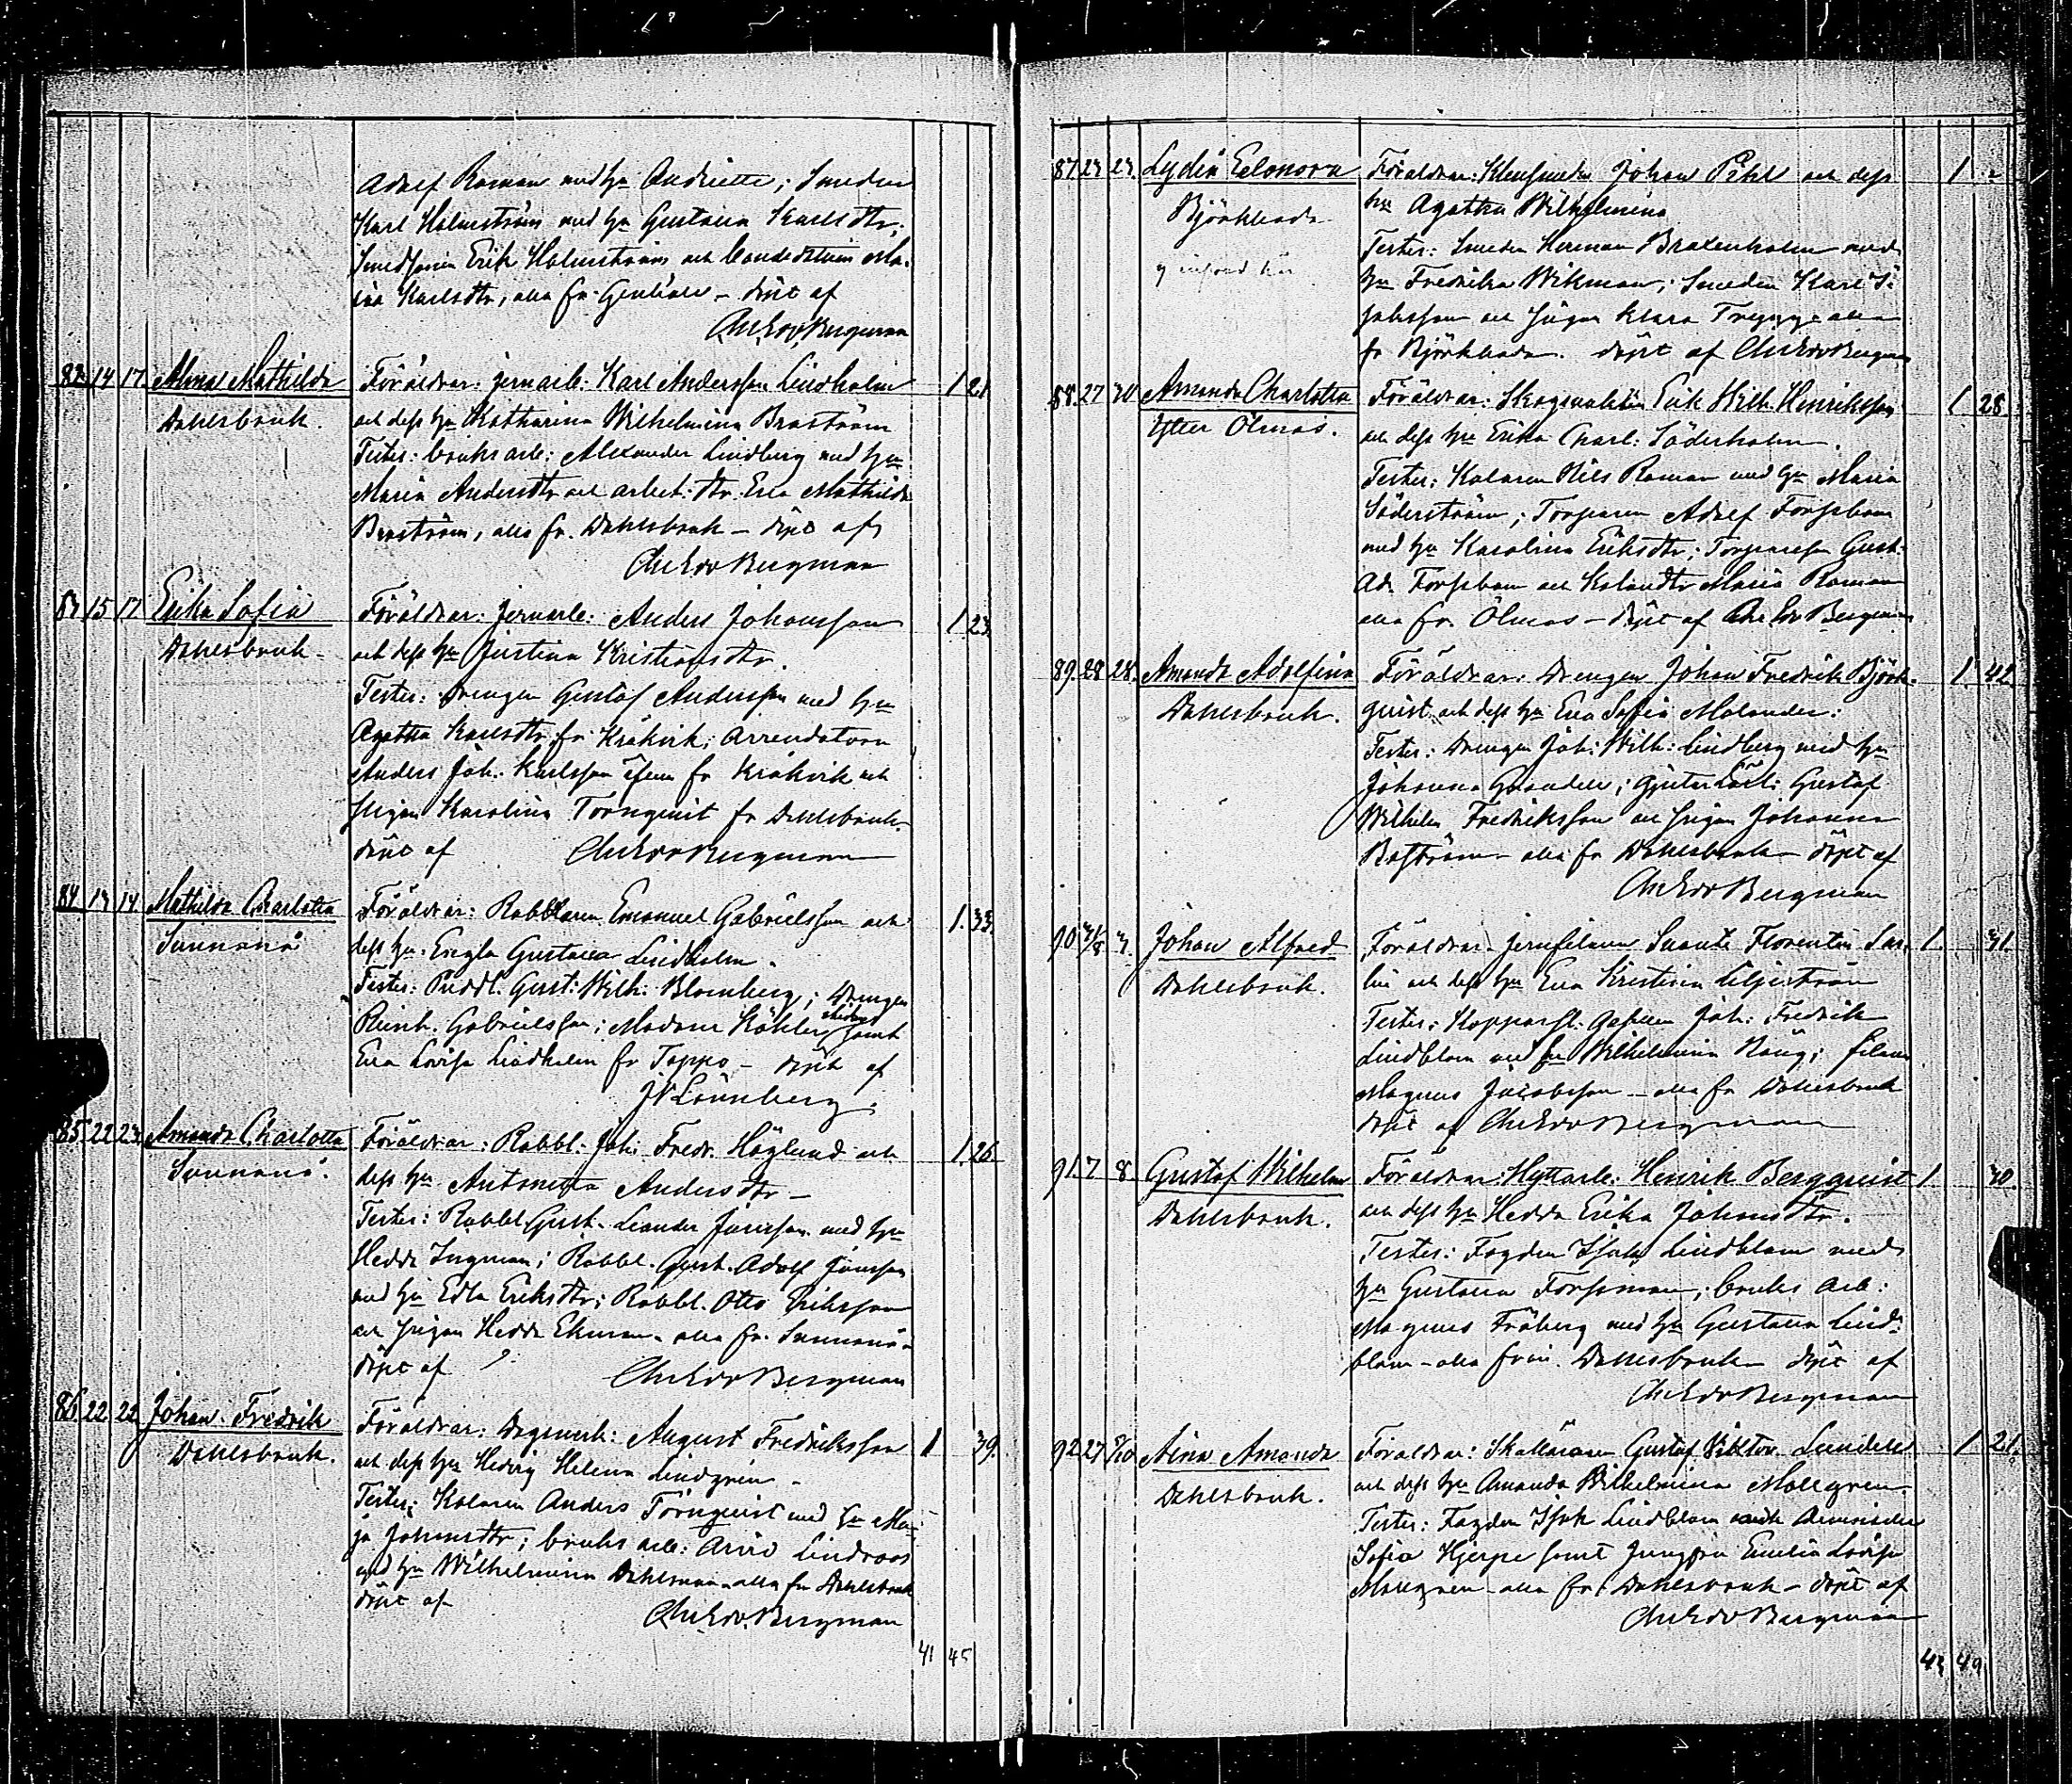 Adolf Roman med h:u Andriette; Smeden
Karl Holmström med h:u Gustava Karlsdtr;
Smedssonen Erik Holmström och bondedottern Ma-
ria Karlsdtr, alla fr. - döpt af
Chr Edv. Bergman
82 14 17 Alma Mathilda Föräldrar: jernarb: Karl Andersson Lindholm 1 21
Dahlsbruk. och dess h:u Katharina Wilhelmina Broström
Testes: bruksarb: Alexander Lindberg med h:u
Maria Andersdtr och arbet: dtr Eva Mathilda
Broström, alla fr. Dahlsbruk - döpt af
Chr Edv Bergman
83 15 17 Erika Sofia Föräldrar: Jernarb: Anders Johansson 1 23
Dahlsbruk - och dess h:u Justina Kristiansdtr.
Testes: drengen Gustaf Andersson med h:u
Agatha Karlsdtr fr. Kråkvik; Arrendatorn
Anders Joh. Karlsson fr Kråkvik och
pigan Karolina Törnquist fr Dahlsbruk.
döpt af Chr Edv Bergman
84 13 14 Mathilda Charlotta Föräldrar: Robblaren Emanuel Gabrielsson och 1. 33
Sunnanå dess h:u Engla Gustava Lindholm.
Testes: Puddl. Gust: Wilh: Blomberg; Drengen
Reinh. Gabrielsson; Madam Köhler samt
Eva Lovisa Lindholm fr Toppo - döpt af
J V Lönnberg.
85 22 23 Amanda Charlotta Föräldrar: Robbl. Joh: Fredr. Höglund och 1. 26
Sunnanå. dess h:u Antonetta Andersdtr -
Testes: Robbl. Gust. Leander Jansson med h:u
Hedda Ingman; Robbl. Gust. Adolf Jansson
med h:u Edla Eriksdtr; Robbl. Otto Eriksson
och pigan Hedda Ekman - alla fr. Sunnanå -
döpt af Chr Edv Bergman
86 22 22 Johan Fredrik Föräldrar: Dagsverk: August Fredriksson 1 39.
Dahlsbruk. och dess h:u Hedvig Helena Lindgren -
Testes: Kolaren Anders Törnquist med h:u Ma-
ja Johansdtr; bruks arb: Arvid Lindroos
med h:u Wilhelmina Dahlman - alla fr Dahlsbruk
döpt af Chr Edv. Bergman
41 45
87 23 23. Lydia Eleonora Föräldrar: Klensmeden Johan Pihl och dess 1
Björkboda h:u Agatha Wilhelmina
Testes: Smeden Herman Braxenholm med
h:u Fredrika Wikman; Smeden Karl
Jakobsson och pigan Klara Trygg - alla
fr Björkboda. döpt af Chr Edv Bergman
88. 27 30 Amanda Charlotta Föräldrar: Skogvaktaren Erik Wilh. Henriksson 1 28
Ytter Ölmos. och dess h:u Erika Charl: Söderholm.
Testes: Kolaren Nils Roman med h:u Maria
Söderström; Torparen Adolf Forsbom
med h:u Karolina Eriksdtr; Torparesson Gust.
Ad. Forsbom och Maria Roman
alla fr. Ölmos - döpt af Chr Edv Bergman
89. 28 28. Amanda Adolfina Föräldrar: Drengen Johan Fredrik Björk- 1. 42
Dahlsbruk. quist och dess h:u Eva Sofia Molander:
Testes: Drengen Joh: Wilh: Lindberg med h:u
Johanna Grandell; Gjutarlärl: Gustaf
Wilhelm Fredriksson och pigan Johanna
Boström - alla fr Dahlsbruk - döpt af
Chr Edv Bergman
90 31/8 3. Johan Alfred Föräldrar. jernfilaren Svante Florentin Sar- 1. 31.
Dahlsbruk. lin och dess h:u Eva Kristina Liljeström
Testes: Joh: Fredrik
Lindblom med h:u Wilhelmina Haug; filaren
Magnus Jacobsson - alla fr Dahlsbruk
döpt af Chr Edv Bergman
91. 7 8 Gustaf Wilhelm Föräldrar Hyttarb: Henrik Bergquist 1. 30.
Dahlsbruk. och dess h:u Hedda Erika Johansdtr.
Testes: Fogden Isak Lindblom med
h:u Gustava Forssman; bruks arb:
Magnus Fröberg med h:u Gustava Lind-
blom - alla från Dahlsbruk - döpt af
Chr Edv Bergman
92 27 Aina Amanda Föräldrar: Skolläraren Gustaf Viktor Lundell 1 21.
Dahlsbruk. och dess h:u Amanda Wilhelmina Mollgren.
Testes: Fogden Isak Lindblom och Demoiselle
Sofia Hjerpe samt Jungfru Emelia Lovisa
Mollgren - alla fr. Dahlsbruk - döpt af
Chr Edv Bergman
43 49